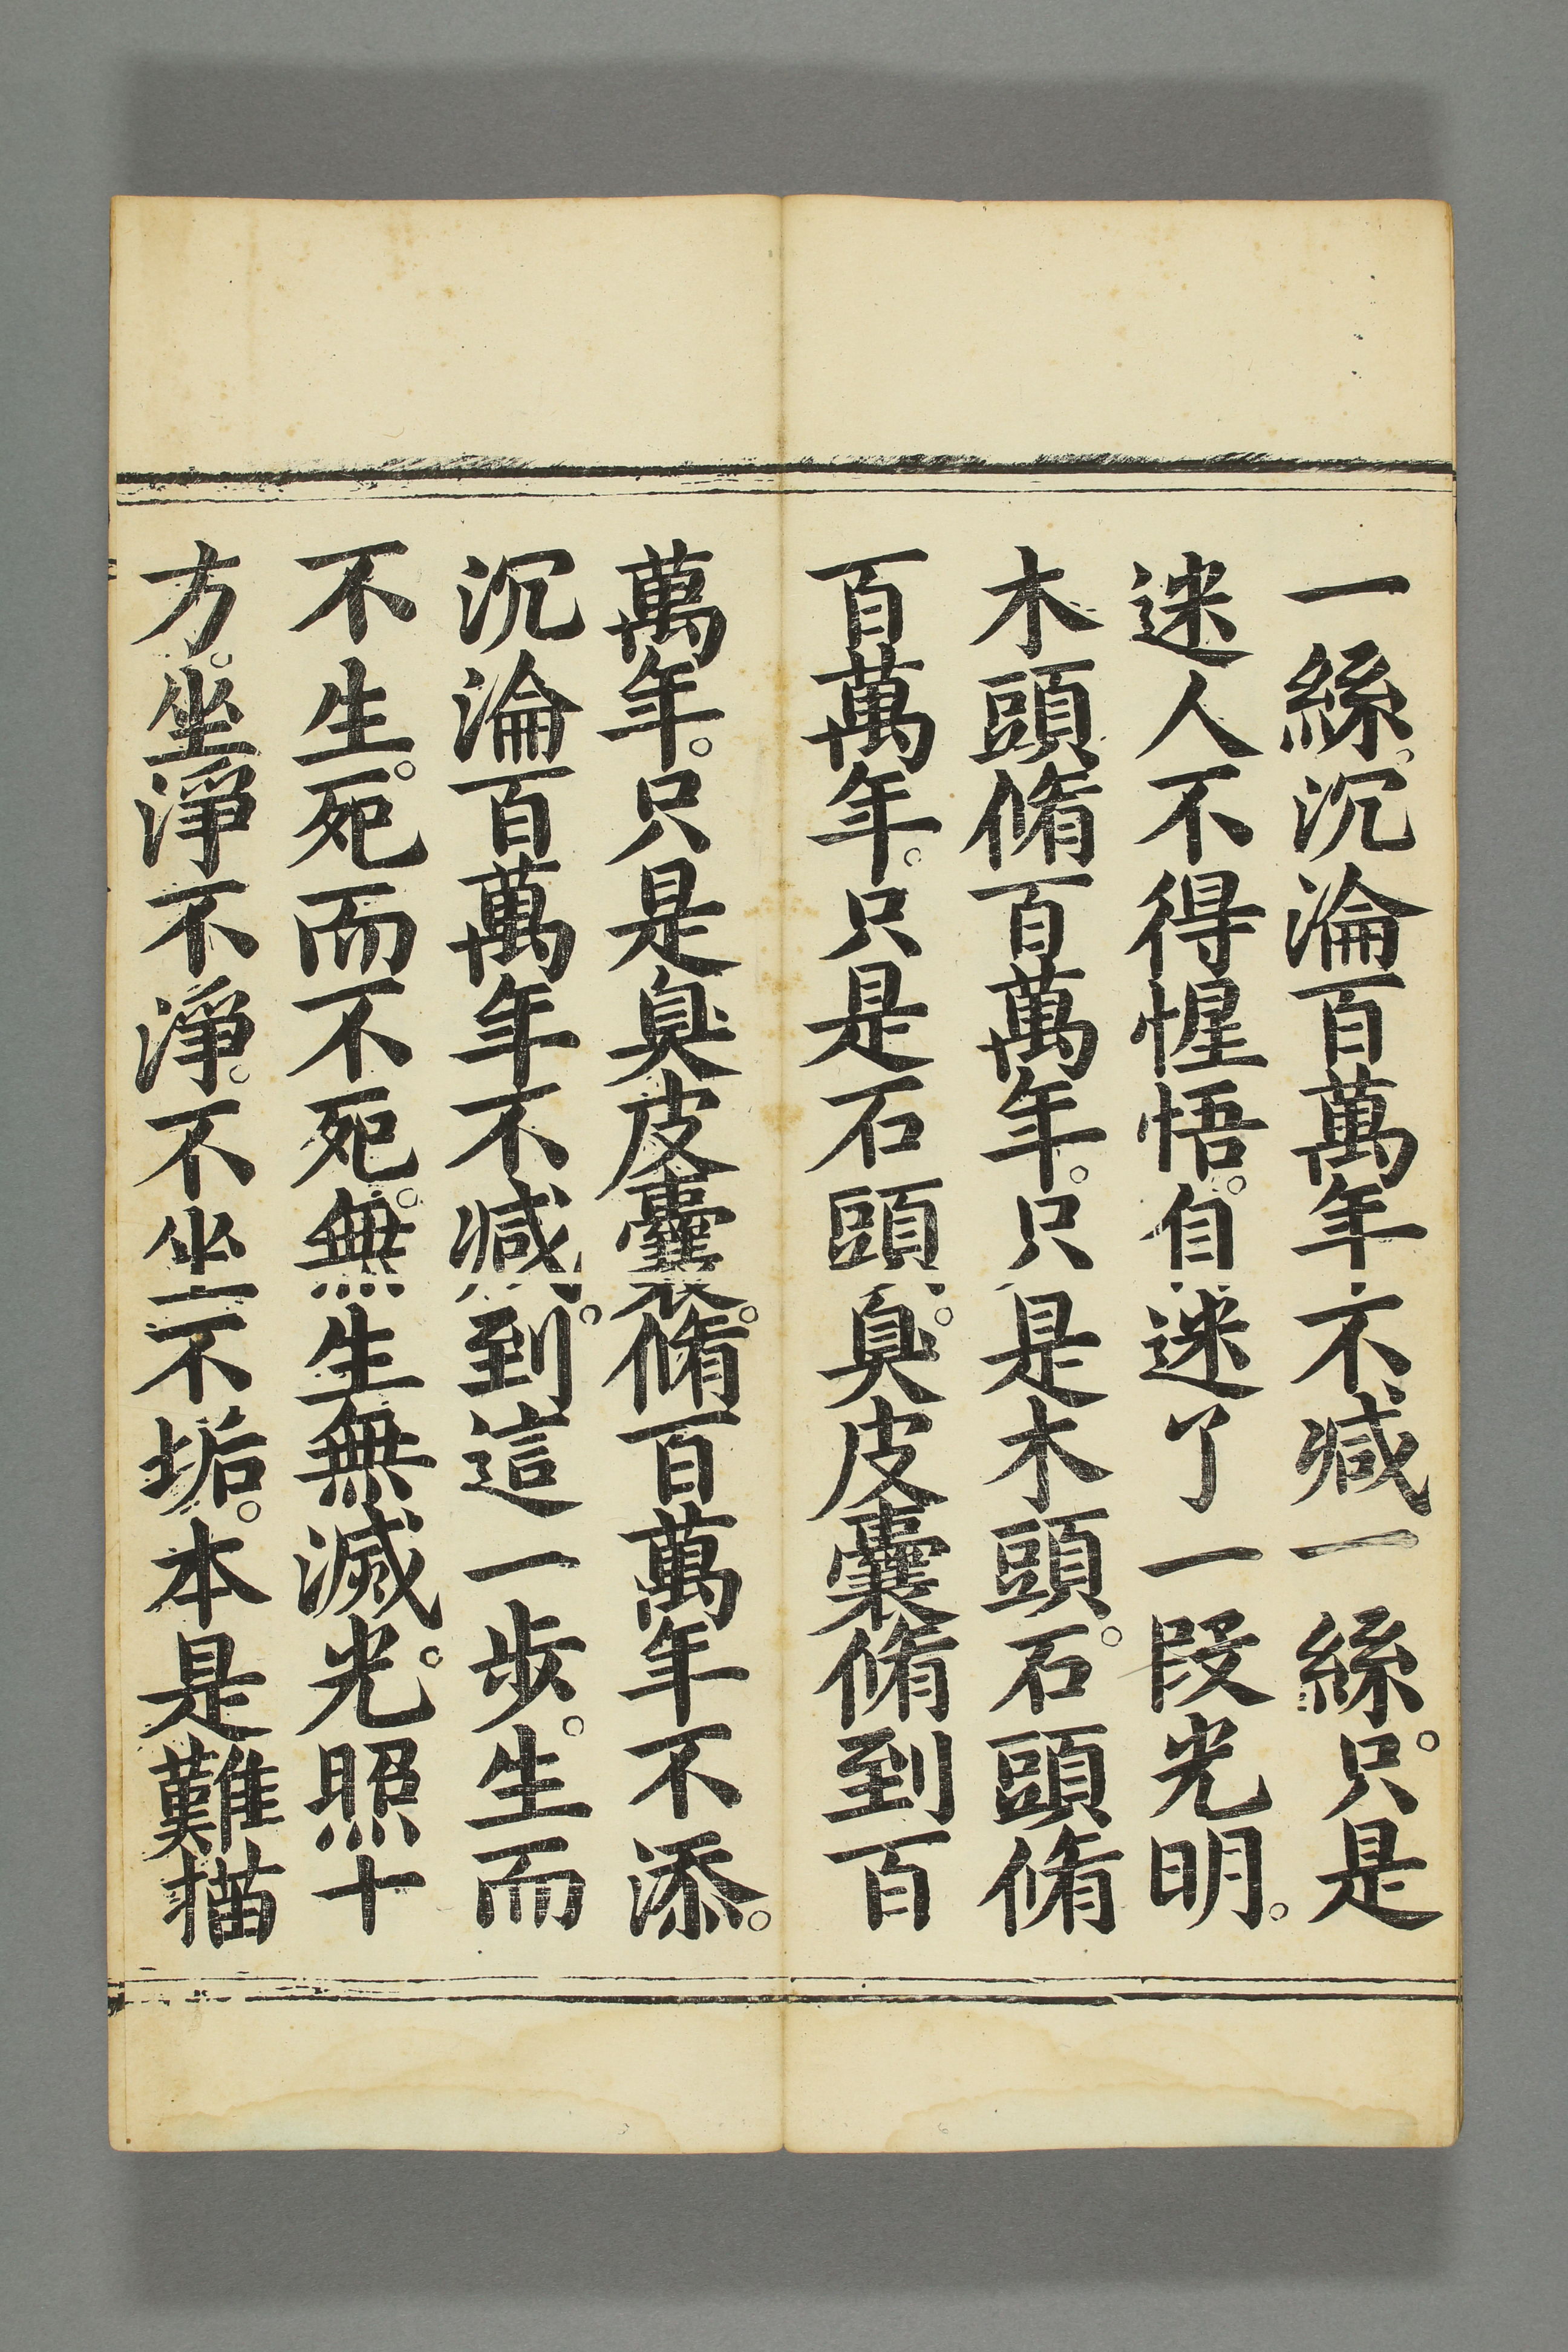 一絲。沉淪百萬年不减一絲。只是
迷人不得惺悟。自迷了一段光明。
木頭脩百萬年。只是木頭。石頭脩
百萬年。只是石頭。臭皮囊脩到百
萬年。只是臭皮囊。脩百萬年不添。
沉淪百萬年不减。到這一步。生而
不生。死而不死。無生無滅。光照十
方。坐淨不淨。不坐不垢。本是難描